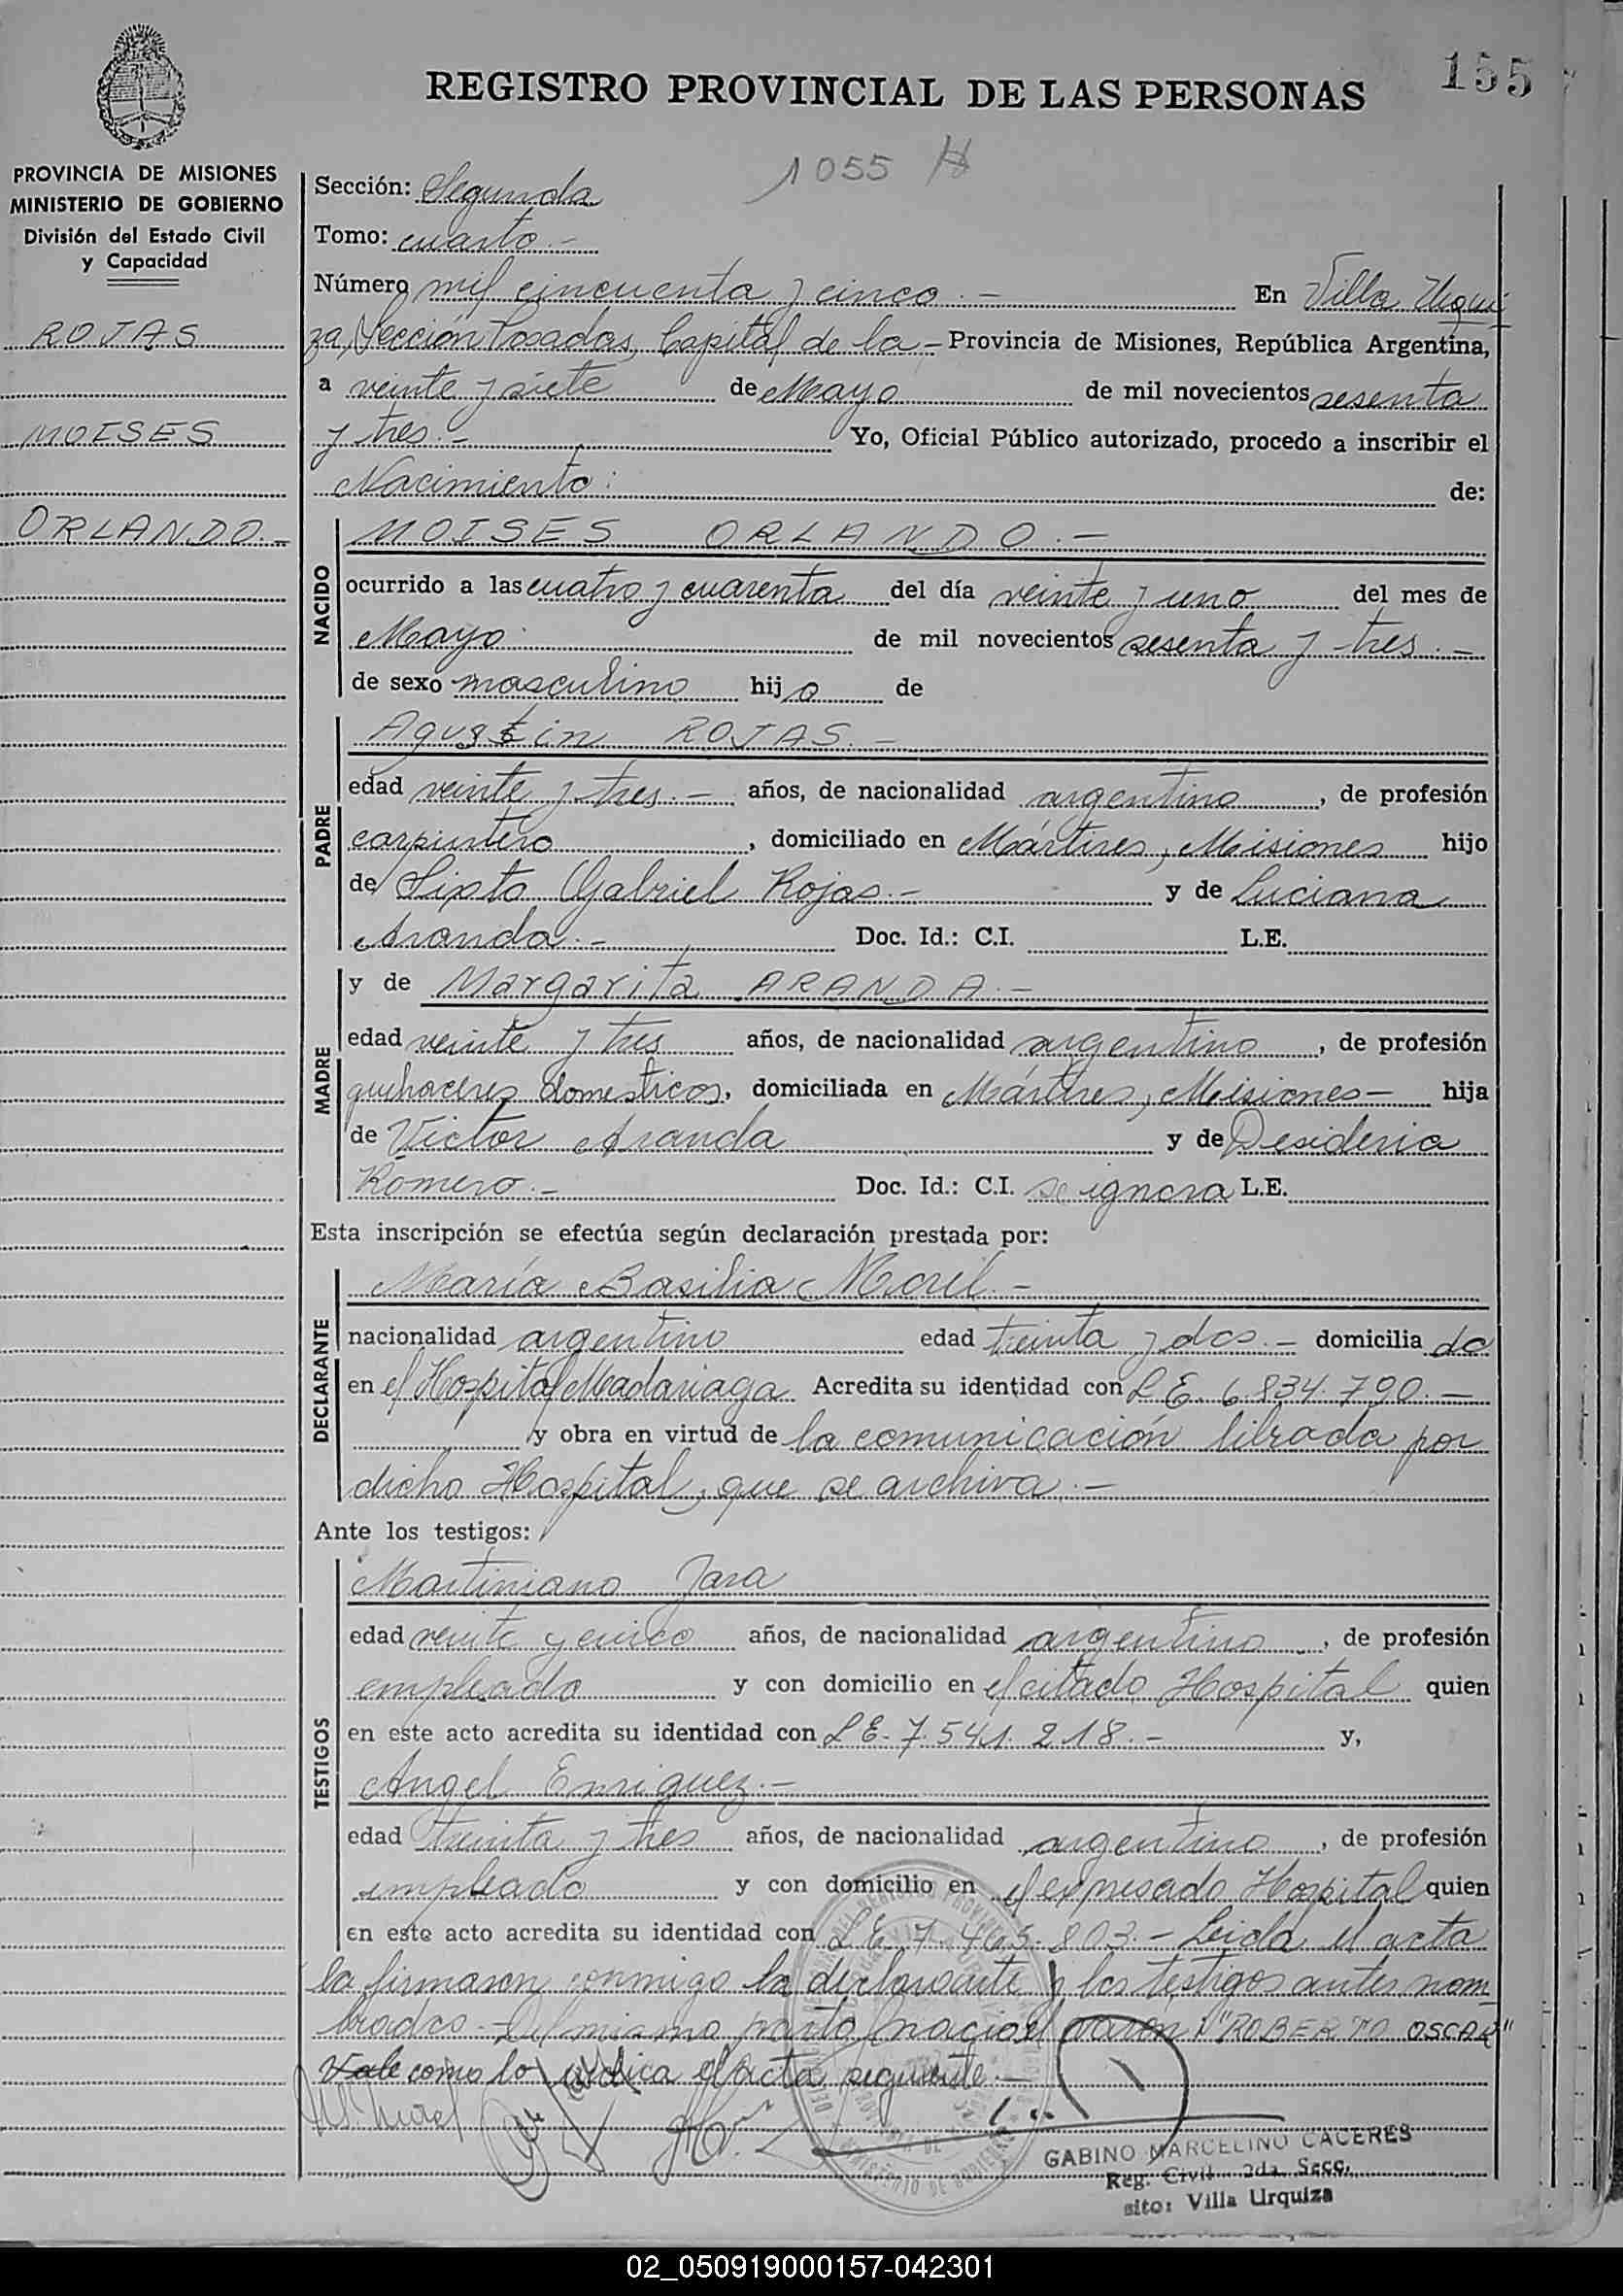 155
REGISTRO PROVINCIAL DE LAS PERSONAS
1055
PROVINCIA DE MISIONES
MINISTERIO DE GOBIERNO
División del Estado Civil
y Capacidad
ROJAS
MOISES
ORLANDO.-
Sección: Segunda
Tomo: cuarto.-
Número mil cincuenta y cinco.- En Villa Urqui
za, Sección Posadas, Capital de la - Provincia de Misiones, República Argentina,
a veinte y siete de Mayo de mil novecientos sesenta
y tres.- Yo, Oficial Público autorizado, procedo a inscribir el
Nacimiento: de:
NACIDO
MOISES ORLANDO.-
ocurrido a las cuatro y cuarenta del día veinte y uno del mes de
Mayo de mil novecientos sesenta y tres.-
de sexo masculino hijo de
PADRE
Agustin ROJAS.-
edad veinte y tres.- años, de nacionalidad argentino, de profesión
carpintero, domiciliado en Mártires, Misiones hijo
de Sixto Gabriel Rojas.- y de Luciana
Aranda.- Doc. Id.: C.I. L.E.
MADRE
y de Margarita ARANDA.-
edad veinte y tres años, de nacionalidad argentino, de profesión
quehaceres domesticos, domiciliada en Mártires, Misiones- hija
de Victor Aranda y de Desideria
Romero.- Doc. Id.: C.I. se ignora L.E.
Esta inscripción se efectúa según declaración prestada por:
DECLARANTE
María Basilia Morel.-
nacionalidad argentino edad treinta y dos.- domiciliado
en el Hospital Madariaga Acredita su identidad con L.E. 6.834.790.-
y obra en virtud de la comunicación librada por
dicho Hospital, que se archiva.-
Ante los testigos:
TESTIGOS
Martiniano Jara
edad veinte y cinco años, de nacionalidad argentino, de profesión
empleado y con domicilio en el citado Hospital quien
en este acto acredita su identidad con L.E. 7.541.218.- y,
Angel Enriquez.-
edad treinta y tres años, de nacionalidad argentino, de profesión
empleado y con domicilio en el expresado Hospital quien
en este acto acredita su identidad con L.E. 7.463.803.- Leida el acta
la firmaron conmigo la declarante y los testigos antes nom
brados.- Del mismo parto nació el varon: "ROBERTO OSCAR"
Vale como lo indica el acta siguiente.-
GABINO MARCELINO CACERES
Reg. Civil 2da. Secc.
sito: Villa Urquiza
02_050919000157-042301